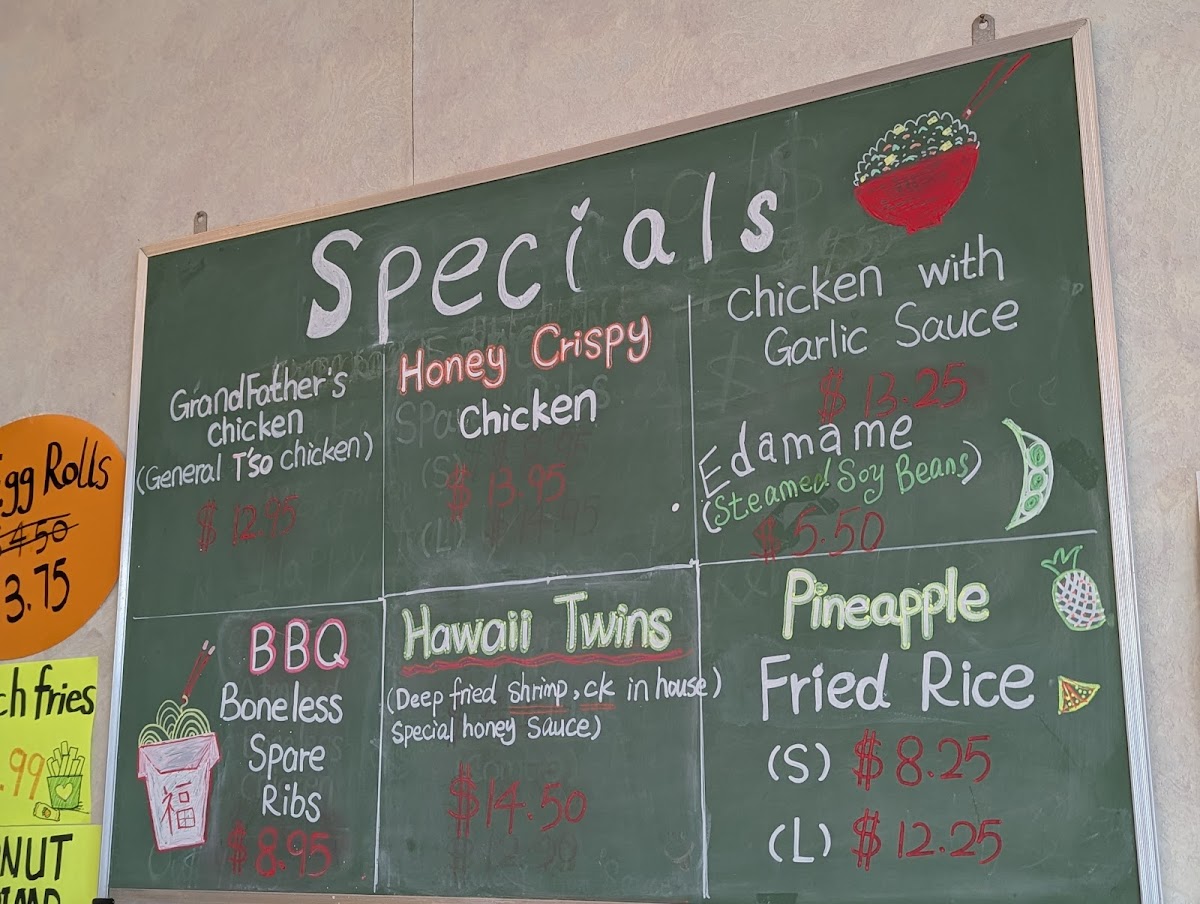 Specials
GrandFather's
chicken
(General T'so chicken)
$ 12.95
Honey Crispy
Chicken
$ 13.95
Chicken with
Garlic Sauce
$ 13.25
Edamame
(Steamed Soy Beans)
$5.50
BBQ
Boneless
Spare
Ribs
$8.95
福
Hawaii Twins
(Deep fried shrimp, ck in house)
special honey sauce)
$14.50
Pineapple
Fried Rice
(S) $8.25
(L) $12.25
Egg Rolls
4.50
3.75
fries
.99